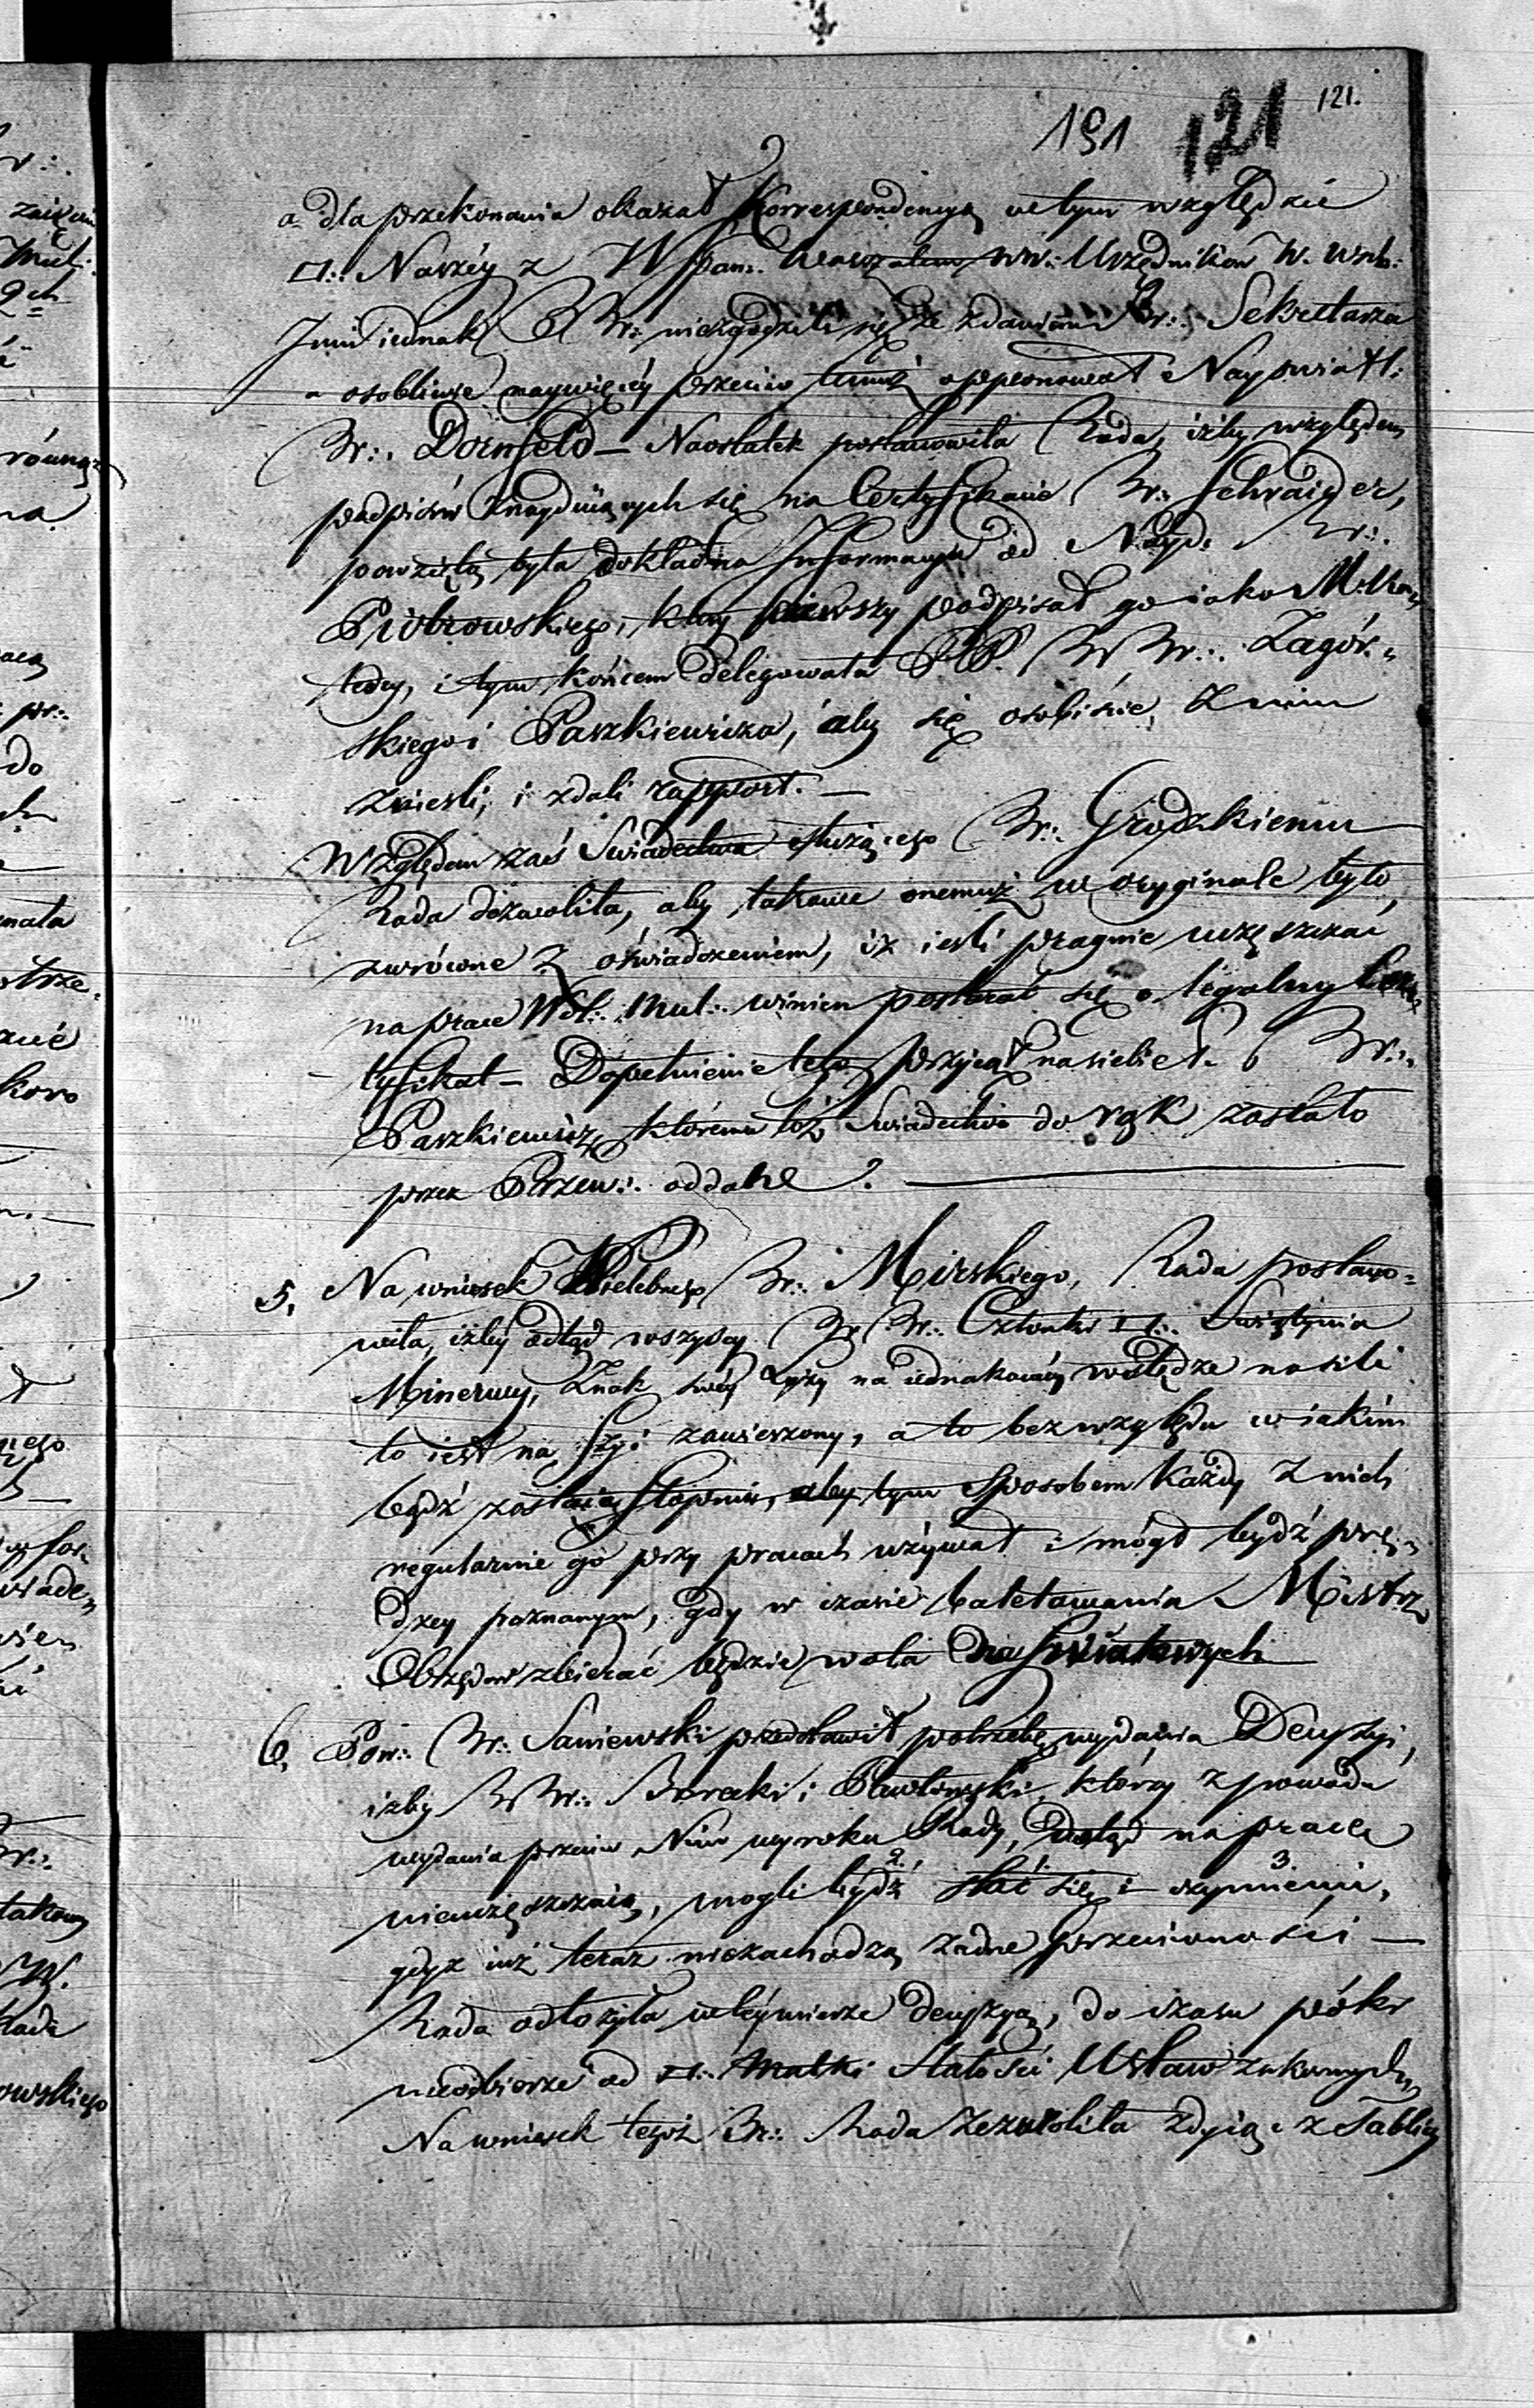 191 121 121.
a dla przekonania okazał Korrespondencyą w tym względzie
□:. Naszéy z W Pan:. Urzędników W. Wsch:
Inni iednak BBr:. niezgodzili się ze zdaniem Br:. Sekretarza
a osobliwie naywięcéy przeciw temuż opponował Nayświatł:
Br:. Dornfeld — Naostatek postanowiła Rada, iżby względem
podpisów znayduiących się na Certyfikacie Br:. Schraiger,
powziętą była dokładna Informacya od Nayd. Br:.
Piotrowskiego, który pierwszy podpisał go iako M: Ka=
tedry, i tym końcem delegowała PP. BBr:. Zagór=
skiego i Paszkiewicza, aby się osobiście z nim
znieśli, i zdali rapport. —
Względem zaś Swiadectwa służącego Br:. Grodzkiemu
Rada dozwoliła, aby takowe onemuż w oryginale było
zwrócone z oświadczeniem, iż ieśli pragnie uczęszczać
na prace Wol:. Mul:. winien postarać się o legalny Cer=
tyfikat — Dopełnienie tego przyiął na siebie P. Br:.
Paszkiewicz, któremu toż Swiadectwo do rąk zostało
przez Przew:. oddane. —
5, Na wniosek Wielebnego Br:. Mirskiego, Rada postano=
wiła, iżby odtąd wszyscy BBr:. Członki □:. Swiątynia
Minerwy, Znak swéy Loży na iednakowéy wstędze nosili
to iest na Szyi zawieszony, a to bez względu w iakim
bądź zostaią Stopniu, aby tym Sposobem każdy z nich
regularnie go przy pracach używał i mógł bydź prę=
dzey poznanym, gdy w czasie baletowania Mistrz
Obrzędów zbierać będzie wota
6, Pow:. Br:. Saniewski przedstawił potrzebę wydania Decyzyi,
iżby BBr:. Borecki i Pawłowski, którzy z powodu
wydania przeciw Nim wyroku Rady, dotąd na prace
nieuczęszczaią, mogli bydź 2. stać się i czynnemi, 3.
gdyż iuż teraz niezachodzą żadne przeciwności —
Rada odłożyła w téy mierze decyzyą, do czasu póki
nieodbierze od □:. Matki Stałości Ustaw zakonnych,
Na wniosek tegoż Br:. Rada zezwoliła zdyiąć z Tablicy